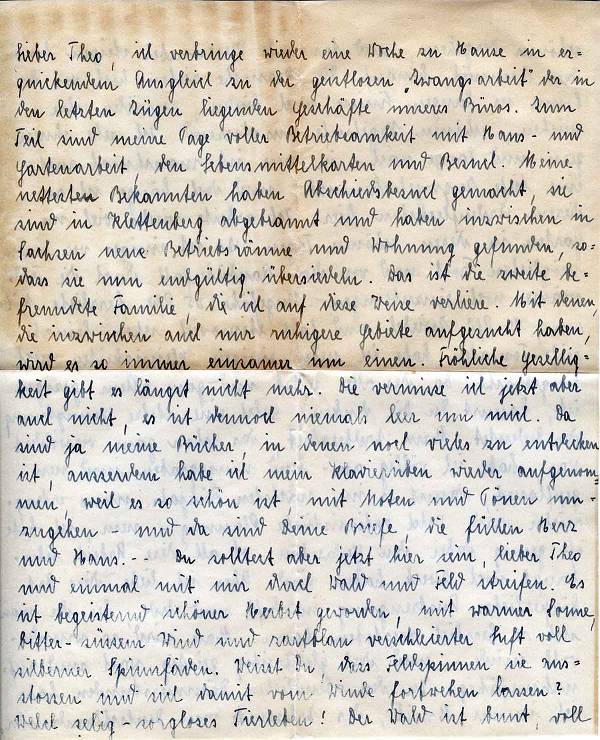 Lieber Theo, ich verbringe wieder eine Woche zu Hause in er=
quickendem Ausgleich zu der geistlosen „Zwangsarbeit" der in
den letzten Zügen liegenden Geschäfte unseres Büros. Zum
Teil sind meine Tage voller Betriebsamkeit mit Haus- und
Gartenarbeit, den Lebensmittelkarten und Besuch. Meine
nettesten Bekannten haben Abschiedsbesuch gemacht, sie
sind in Klettenberg abgebrannt und haben inzwischen in
Sachsen neue Betriebsräume und Wohnung gefunden, so=
dass sie nun endgültig übersiedeln. Das ist die zweite be=
freundete Familie, die ich auf diese Weise verliere. Mit denen,
die inzwischen auch nur ruhigere Gebiete aufgesucht haben,
wird es so immer einsamer um einen. Fröhliche Gesellig=
keit gibt es längst nicht mehr. Die vermisse ich jetzt aber
auch nicht, es ist dennoch niemals leer um mich. Da
sind ja meine Bücher, in denen noch vieles zu entdecken
ist, ausserdem habe ich mein Klavierüben wieder aufgenom=
men, weil es so schön ist, mit Noten und Tönen um=
zugehen - und da sind Deine Briefe, die füllen Herz
und Haus. - Du solltest aber jetzt hier sein, lieber Theo
und einmal mit mir durch Wald und Feld streifen. Es
ist begeisternd schöner Herbst geworden, mit warmer Sonne,
bitter-süssem Wind und zartblau verschleierter Luft voll
silberner Spinnfäden. Weisst Du, dass Feldspinnen sie aus=
stossen und sich damit vom Winde fortwehen lassen?
Welch selig-sorgloses Tierleben! Der Wald ist bunt, voll